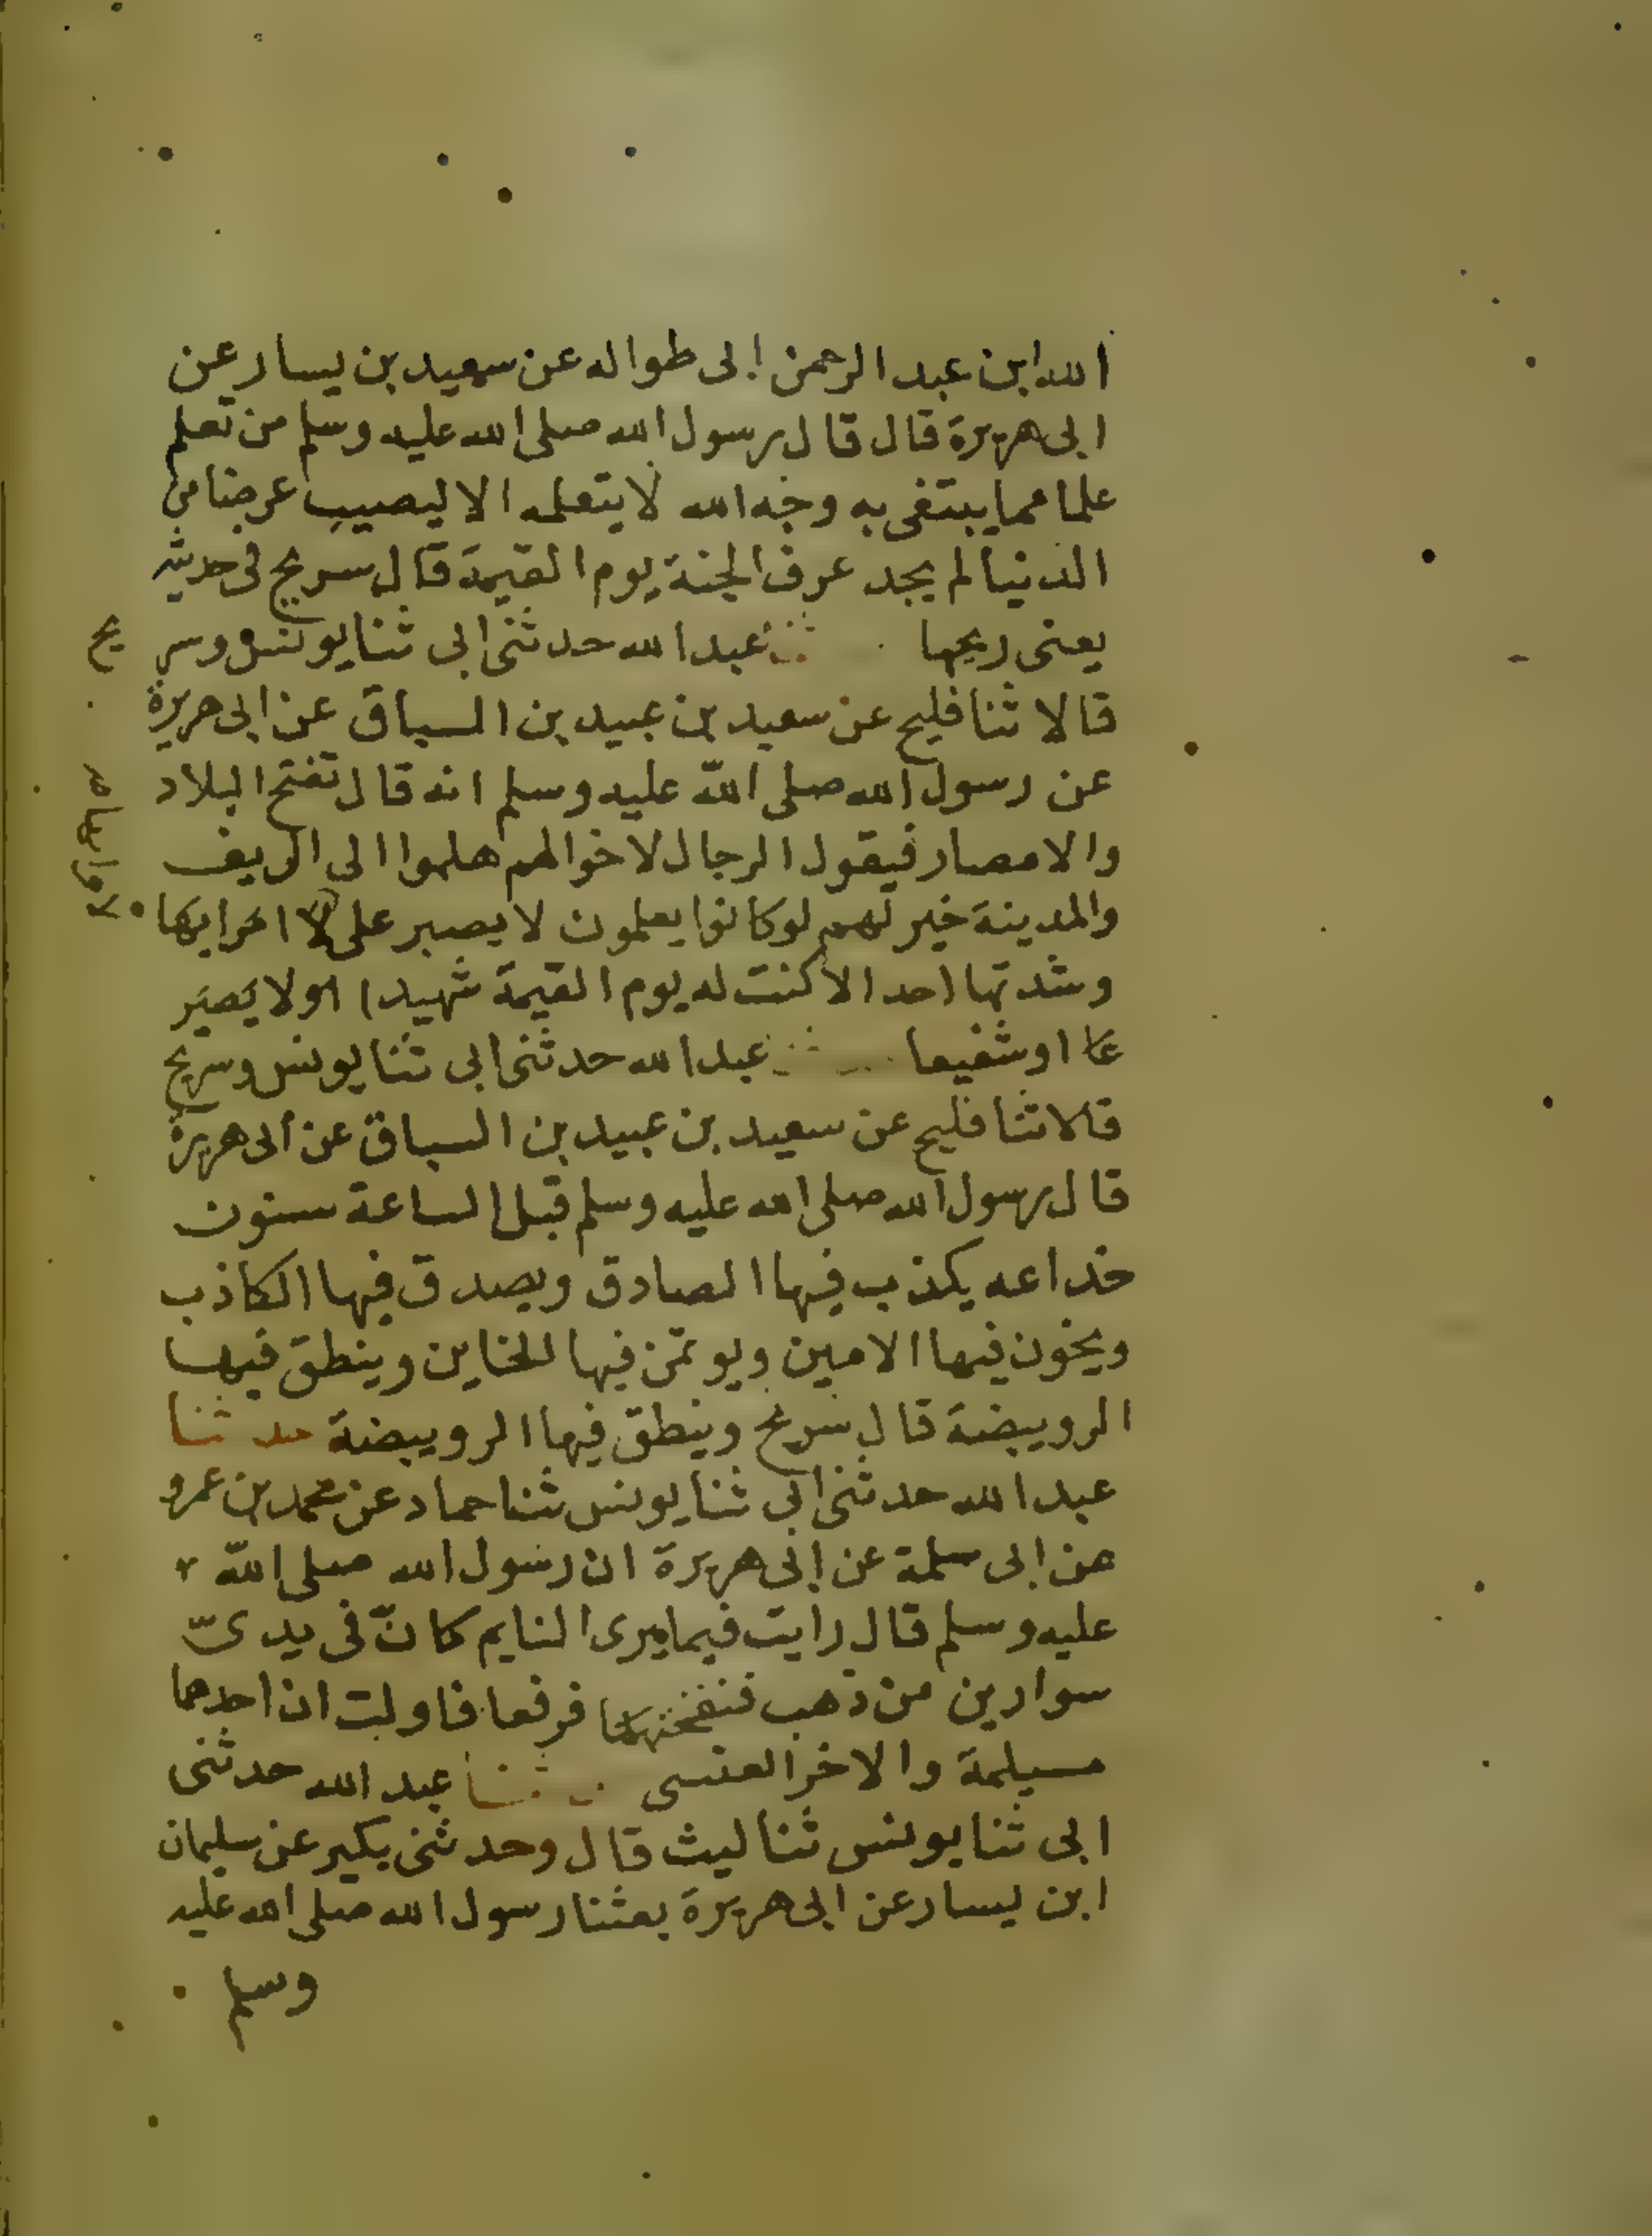 الله ابن عبد الرحمن ابى طواله عن سعيد بن يسار عن
ابى هريرة قال قال رسول الله صلى الله عليه وسلم من تعلم
علما مما يبتغى به وجه الله لا يتعلمه الا ليصيب عرضا من
الدنيا لم يجد عرف الجنة يوم القيمة قال سريج فى حديثه
يعنى ريحها ثنا عبد الله حدثنى ابى ثنا يونس وسريج
قالا ثنا فليح عن سعيد بن عبيد بن السباق عن ابى هريرة
عن رسول الله صلى الله عليه وسلم انه قال تفتح البلاد
والامصار فيقول الرجال لاخوالهم هلموا الى الريف
والمدينة خير لهم لو كانوا يعلمون لا يصبر على
وشدتها احد الا كنت له يوم القيمة شهيدا
او شفيعا عبد الله حدثنى ابى ثنا يونس وسريج
قالا ثنا فليح عن سعيد بن عبيد بن السباق عن ابى هريرة
قال رسول الله صلى الله عليه وسلم قبل الساعة سنون
خداعه يكذب فيها الصادق ويصدق فيها الكاذب
ويخون فيها الامين ويوتمن فيها الخاين وينطق فيها
الرويبضة قال سريج وينطق فيها الرويبضة حدثنا
عبد الله حدثنى ابى ثنا يونس ثنا حماد عن محمد بن عمرو
عن ابى سلمة عن ابى هريرة ان رسول الله صلى الله
عليه وسلم قال رايت فيما يرى النايم كان فى يدىّ
سوارين من ذهب فنفختهما فرفعا فاولت ان احدهما
مسيلمة والاخر العنسى ثنا عبد الله حدثنى
ابى ثنا يونس ثنا ليث قال وحدثنى بكير عن سليمان
ابن يسار عن ابى هريرة بعثنا رسول الله صلى الله عليه
وسلم